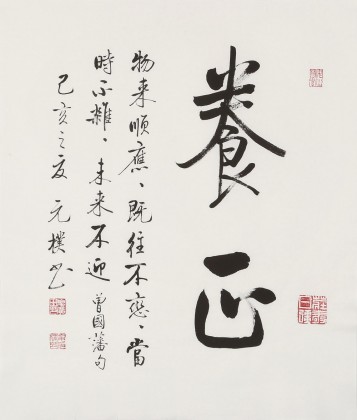 養正
物来順應、既往不戀、當
時不雜、未来不迎 曾國藩句
己亥之夏 元樸书